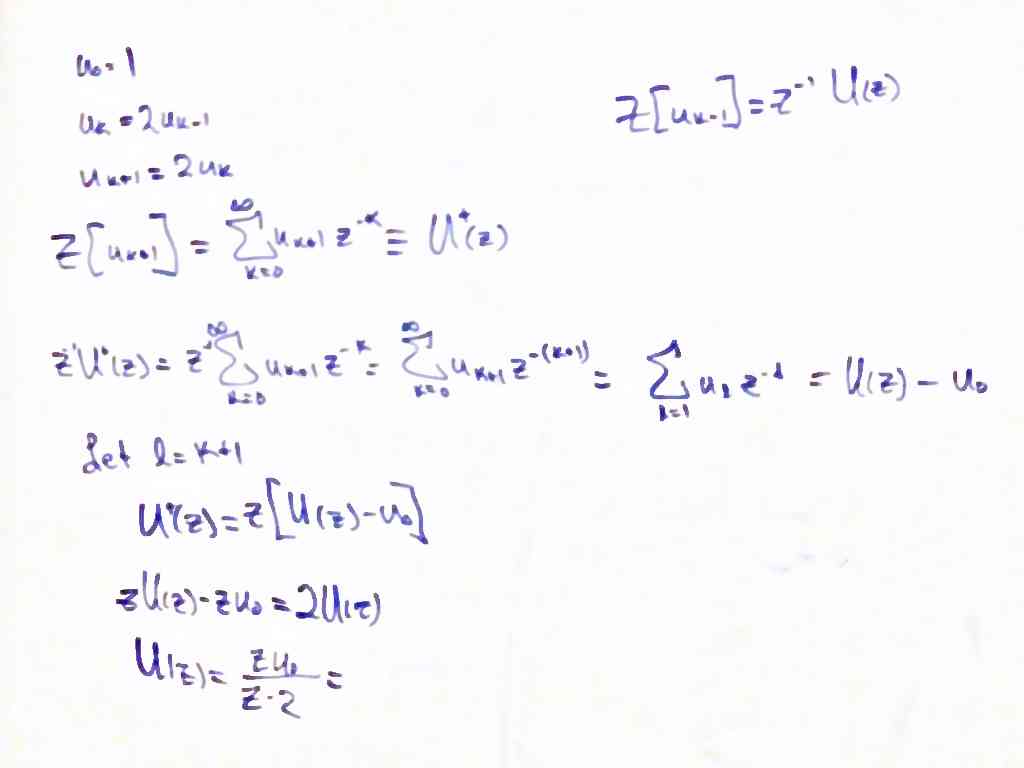 u₀ = 1
Z[uₖ₋₁] = z⁻¹ U(z)
uₖ = 2uₖ₋₁
uₖ₊₁ = 2uₖ
Z[uₖ₊₁] = ∑_{k=0}^{∞} uₖ₊₁ z⁻ᵏ ≡ U⁺(z)
z⁻¹U⁺(z) = z⁻¹ ∑_{k=0}^{∞} uₖ₊₁ z⁻ᵏ = ∑_{k=0}^{∞} uₖ₊₁ z^{-(k+1)} = ∑_{l=1} uₗ z^{-l} = U(z) - u₀
Let l = k+1
U⁺(z) = z[U(z) - u₀]
zU(z) - zu₀ = 2U(z)
U(z) = zu₀ / (z-2) =